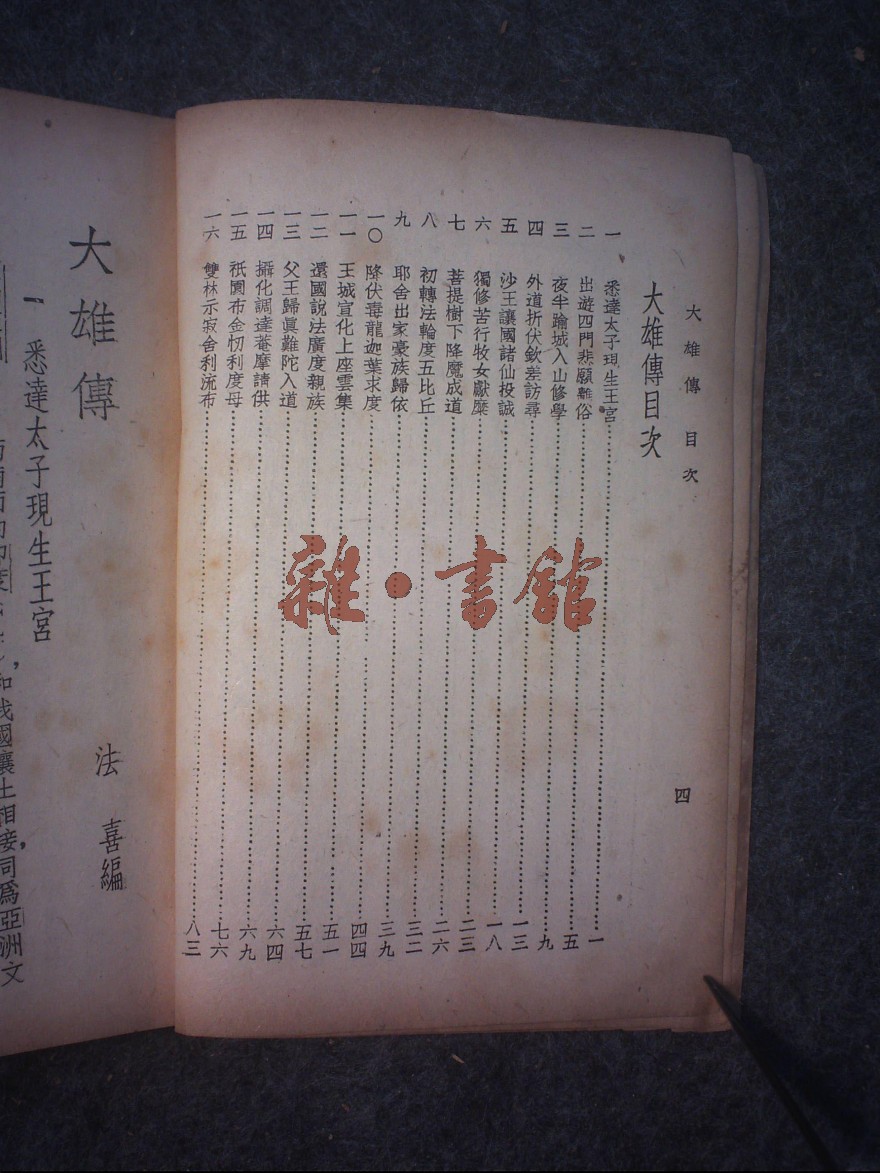 大雄傳 目次
四
大雄傳目次
一 悉達太子現生王宮 一
二 出遊四門悲願離俗 五
三 夜半踰城入山修學 九
四 外道折伏欽差訪尋 一三
五 沙王讓國諸仙投誠 一八
六 獨修苦行牧女獻糜 二三
七 菩提樹下降魔成道 二六
八 初轉法輪度五比丘 三二
九 耶舍出家豪族歸依 三九
一〇 降伏毒龍迦葉求度 四四
一一 王城宣化上座雲集 五一
一二 還國說法廣度親族 五七
一三 父王歸眞難陀入道 六四
一四 攝化調達菴摩請供 六九
一五 祇園布金忉利度母 七六
一六 雙林示寂舍利流布 八三
大雄傳
法喜編
一 悉達太子現生王宮
和我國壤土相接,同爲亞洲文
雜·書館